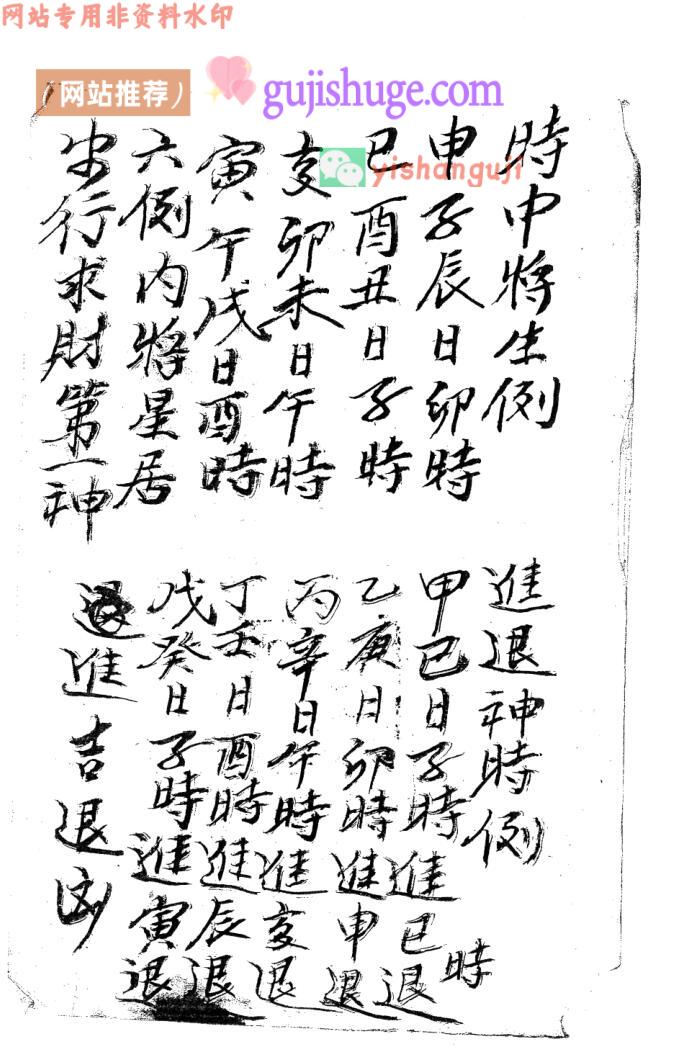 网站专用非资料水印
（网站推荐）
gujishuge.com
yishanguji
時中將生例
申子辰日卯時
巳酉丑日子時
亥卯未日午時
寅午戌日酉時
六例内將星居
行求財第一神
進退神時例
甲己日子時進巳退時
乙庚日卯時進申退
丙辛日午時進亥退
丁壬日酉時進辰退
戊癸日子時進寅退
進吉退凶